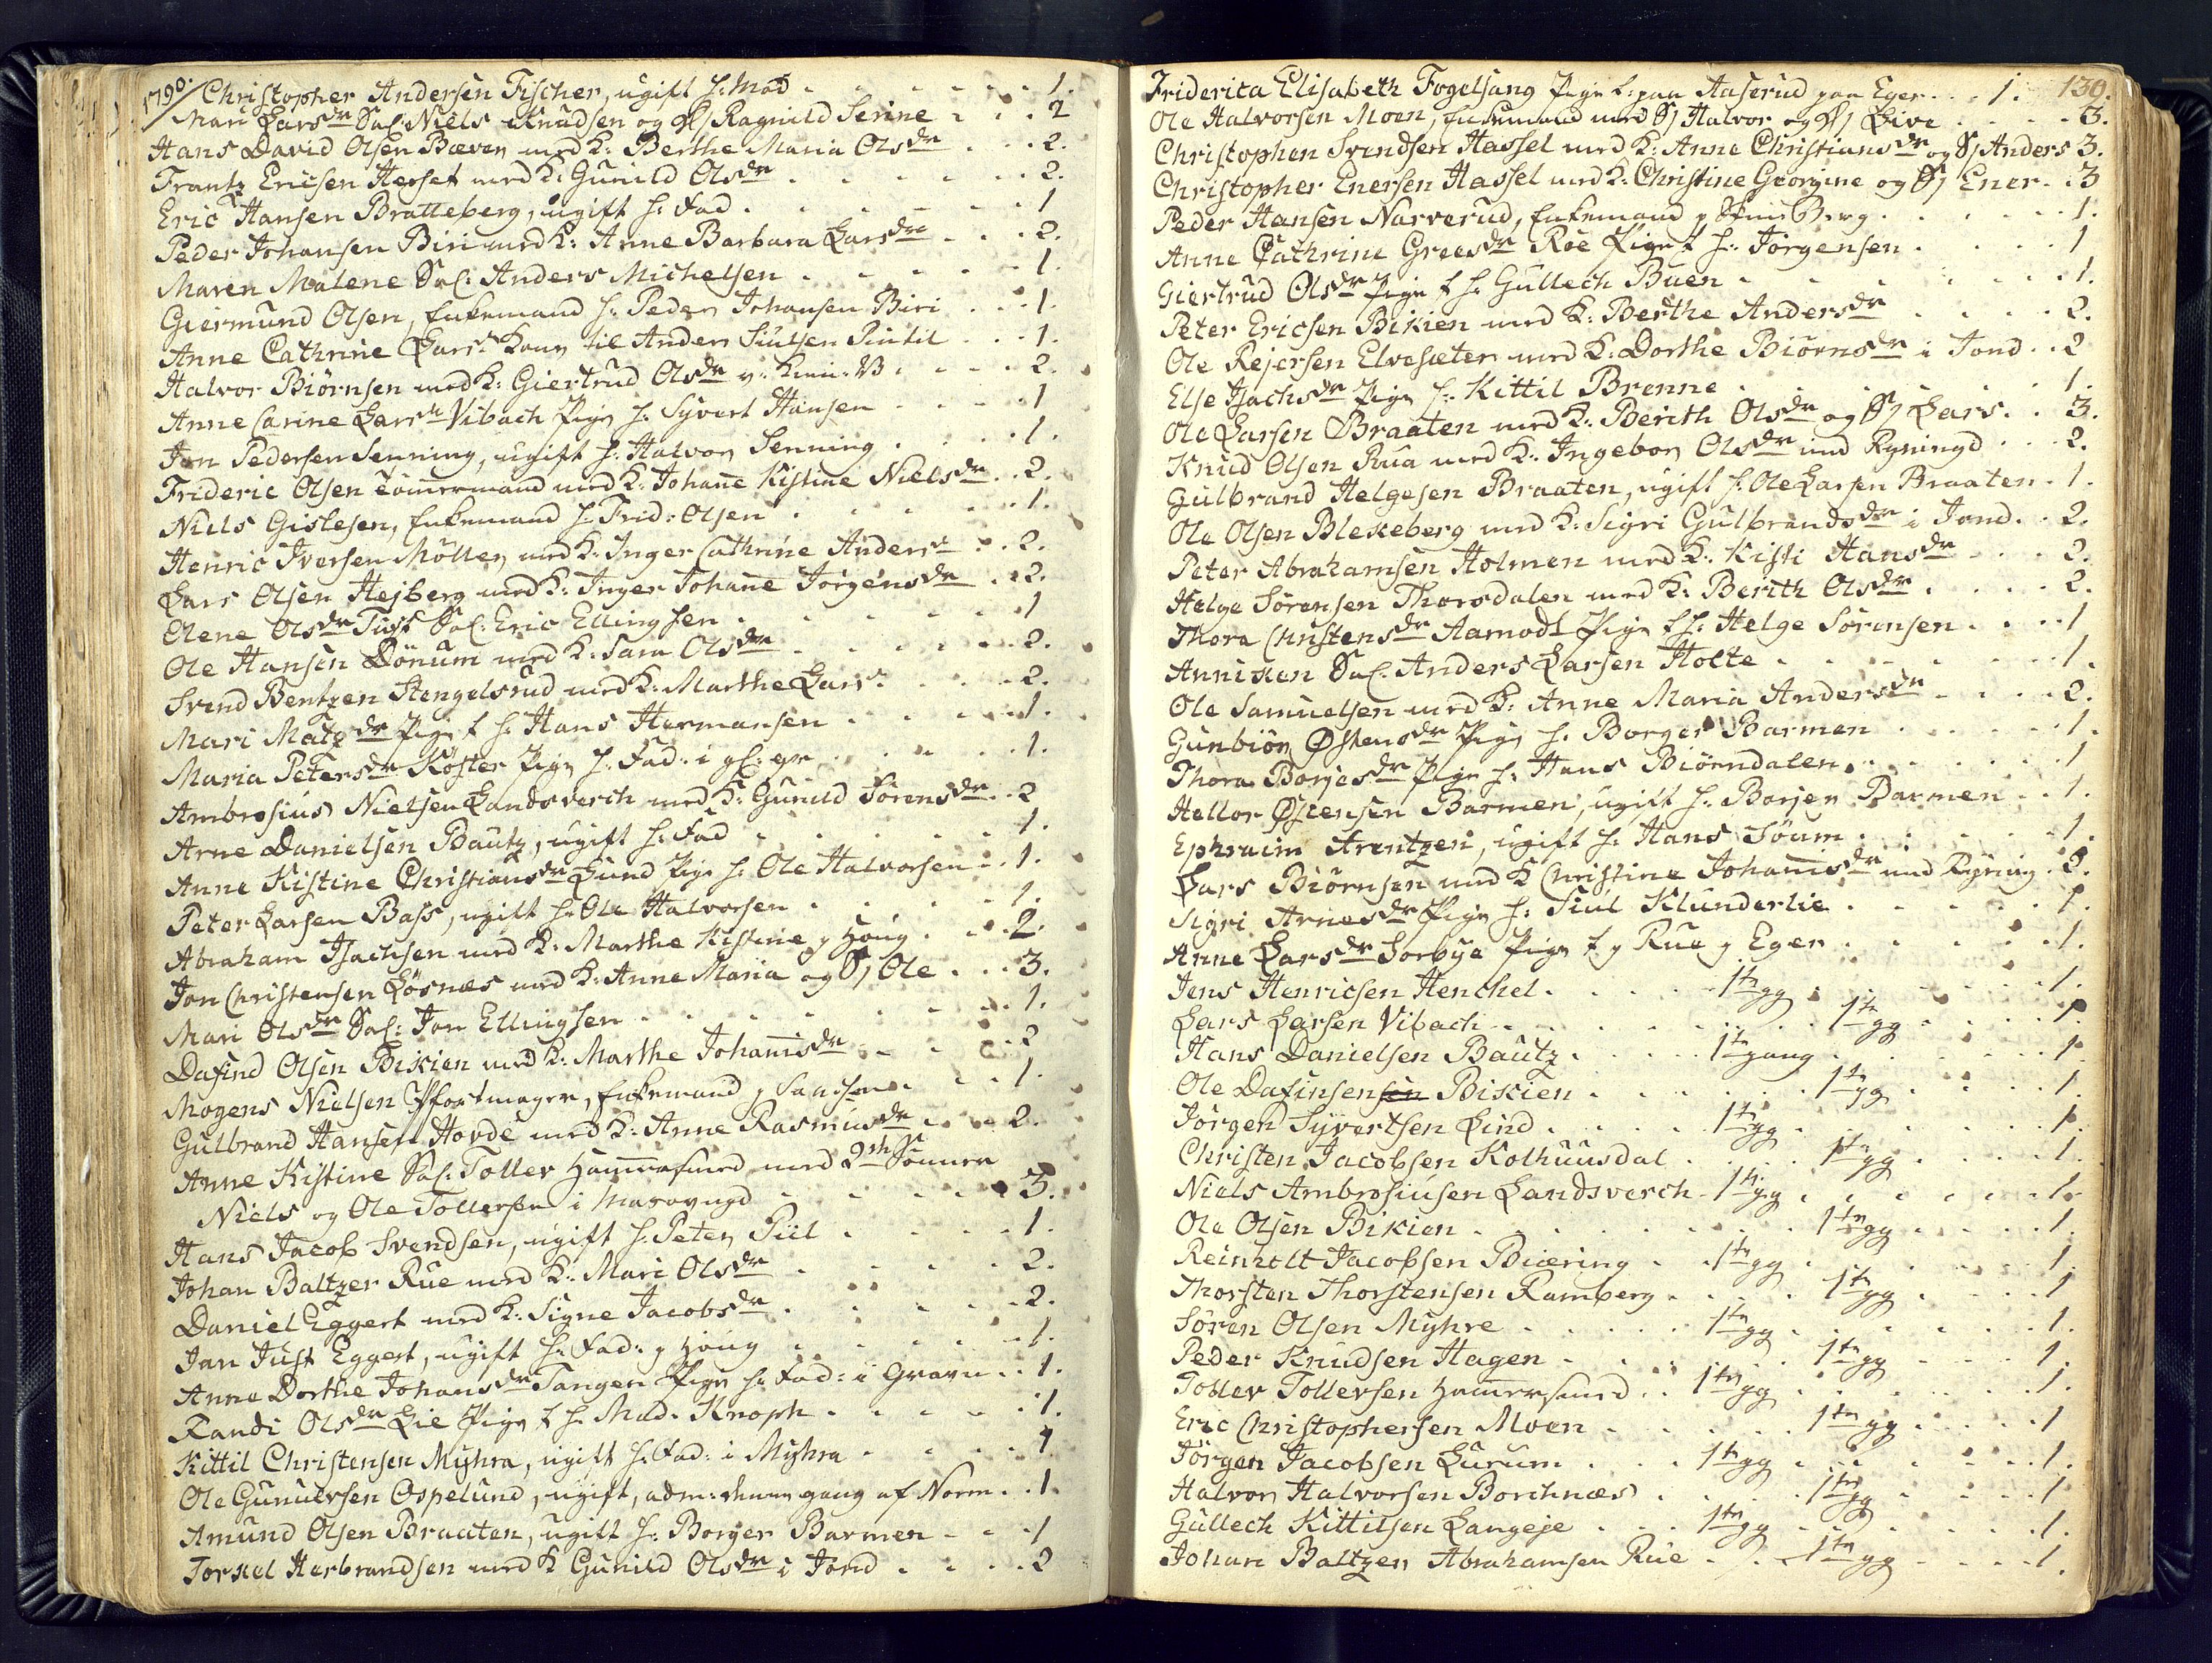 1790.
Christopher Andersen Fischer, ugift h: Mad . . . . . . 1.
Mari Larsdr Sal: Niels Knudsen og D/ Ragnild Serine . . . 2
Hans David Olsen Bæver med K: Berthe Maria Olsdr . . . 2.
Frantz Ericsen Herset med K: Gunild Olsdr . . . . . . 2.
Eric Hansen Bratteberg, ugift h: Fad . . . . . . 1
Peder Johansen Biri med K: Anne Barbara Larsdr . . . 2.
Maren Malene Sal: Anders Michelsen . . . . . . 1.
Giermund Olsen, Enkemand h: Peder Johansen Biri . . . 1.
Anne Cathrine Larsdr Kone til Anders Siulsen . . . 1.
Halvor Biörnsen med K: Giertrud Olsdr . . . . 2.
Anne Carine Larsdr Vibach Pige h: Syvert Hansen . . . 1
Jon Pedersen Senning, ugift h: Halvor Senning . . . . 1.
Frideric Olsen Tömermand med K: Johane Kistine Nielsdr . . 2.
Niels Gislesen, Enkemand h: Frid: Olsen . . . . . . 1.
Henric Iversen Möller med K: Inger Cathrine Andersdr . . 2.
Lars Olsen Hejberg med K: Inger Johane Jörgensdr . . 2.
Olene Olsdr Tuft Sal: Eric Ellingsen . . . . . . 1
Ole Hansen Dönum med K: Sara Olsdr . . . . . . 2.
Svend Bentzen Stengelsrud med K: Marthe Larsdr . . . 2.
Mari Matzdr Pige t h: Hans Hermansen . . . . . 1.
Maria Petersdr Köster Pige h: Fad: i gl: gr . . . . 1.
Ambrosius Nielsen Landsverch med K: Gunild Sörensdr . . 2
Arne Danielsen Bautz, ugift h: Fad . . . . . . 1.
Anne Kistine Christiansdr Lund Pige h: Ole Halvorsen . . 1.
Peter Larsen Bass, ugift h: Ole Halvorsen . . . . . 1.
Abraham Isachsen med K: Marthe Kistine p Houg . . . 2.
Jon Christensen Lösnæs med K: Anne Maria og S/ Ole . . . 3.
Mari Olsdr Sal: Jon Ellingsen . . . . . . 1.
Dafind Olsen Bikien med K: Marthe Johansdr . . . 2
Mogens Nielsen Pfortmager, Enkemand p . . . 1.
Gulbrand Hansen Hovde med K: Anne Rasmusdr . . . 2.
Anne Kistine Sal: Toller Hamersmed med 2de Sönner
Niels og Ole Tollersen i . . . . . . 3.
Hans Jacob Svendsen, ugift h: Peter Piil . . . . 1.
Johan Baltzer Rue med K: Mari Olsdr . . . . 2.
Daniel Eggert med K: Signe Jacobsdr . . . . . 2.
Jan Just Eggert, ugift h: Fad: p Houg . . . . . 1.
Anne Dorthe Johansdr Tangen Pige h: Fad: i Graven . . 1.
Randi Olsdr Lie Pige t h: Mad. Knoph . . . . . 1.
Kittil Christensen Myhra, ugift h: Fad: i Myhra . . . . 1
Ole Gunuersen Ospelund, ugift, adm: denne gang af Norm . . 1.
Amund Olsen Braaten, ugift h: Borger Barmen . . . 1
Torkel Herbrandsen med K Gunild Olsdr i Jond . . . . 2
130.
Friderica Elisabeth Fogelsang Pige t: paa Aaserud paa Eger . . . 1.
Ole Halvorsen Moen, Enkemand med S/ Halvor og D/ Live . . . . 3.
Christopher Svendsen Hassel med K: Anne Christiansdr og S/ Anders 3.
Christopher Enersen Hassel med K: Christine Georgine og S/ Ener . . 3
Peder Hansen Narverud, Enkemand p . . . . . . 1.
Anne Cathrine Greesdr Roe Pige t h: Jörgensen . . . . . 1
Giertrud Olsdr Pige t h: Gullech Buen . . . . . . 1.
Peter Ericsen Bikien med K: Berthe Andersdr . . . . 2.
Ole Rejersen Elvesæter med K: Dorthe Biörnsdr i Jond . . 2
Else Isachsdr Pige h: Kittil Brenne . . . . . . 1.
Ole Larsen Braaten med K: Berith Olsdr og S/ Lars . . 3.
Knud Olsen Rua med K: Ingebor Olsdr . . . 2.
Gulbrand Helgesen Braaten, ugift h: Ole Larsen Braaten . 1.
Ole Olsen Blekeberg med K: Sigri Gulbrandsdr i Jond . . 2.
Peter Abrahamsen Holmen med K: Kisti Hansdr . . . 2.
Helge Sörensen Thorsdalen med K: Berith Olsdr . . . . 2.
Thora Christensdr Aamodt Pige t h: Helge Sörensen . . . . 1
Anniken Sal: Anders Larsen Holte . . . . . . 1.
Ole Samuelsen med K: Anne Maria Andersdr . . . . 2.
Gunbiör Østensdr Pige h: Borger Barmen . . . . . 1.
Thora Borgesdr Pige h: Hans Biörndalen . . . . . 1
Hellor Østensen Barmen, ugift h: Borger Barmen . . 1.
Ephraim Arentzen, ugift h: Hans Söum . . . . . . 1.
Lars Biörnsen med K Christine Johansdr . . 2.
Sigri Arnesdr Pige h: Siul Klunderlie . . . . . . 1.
Anne Larsdr Sorbye Pige t p Rue p Eger . . . . . 1.
Jens Henricsen Henchel . . . . . 1ste gg . . . . . 1.
Lars Larsen Vibach . . . . . . . 1ste gg . . . . 1
Hans Danielsen Bautz . . . . . 1ste gang . . . . . 1
Ole Dafinsen Bikien . . . . . 1ste gg . . . . . 1.
Jörgen Syvertsen Lind . . . . . 1ste gg . . . . . 1.
Christen Jacobsen Kolhuusdal . . . . 1ste gg . . . . 1.
Niels Ambrosiusen Landsverch . 1ste gg . . . . . . 1.
Ole Olsen Bikien . . . . . . . . 1ste gg . . . . 1.
Reinholt Jacobsen Biæring . . 1ste gg . . . . . . 1.
Thorsten Thorstensen Ramberg . . . . 1ste gg . . . . 1
Sören Olsen Myhre . . . . . 1ste gg . . . . . 1.
Peder Knudsen Hagen . . . . . . 1ste gg . . . . 1
Toller Tollersen Hamersmed . . 1ste gg . . . . . . 1.
Eric Christophersen Moen . . . . . 1ste gg . . . . 1
Jörgen Jacobsen Lurum . . . . 1ste gg . . . . . . 1.
Halvor Halvorsen Borchnæs . . . . . 1ste gg . . . . 1
Gullech Kittilsen Langeje . . . 1ste gg . . . . . . 1.
Johan Baltzer Abrahamsen Rue . . . 1ste gg . . . . 1.